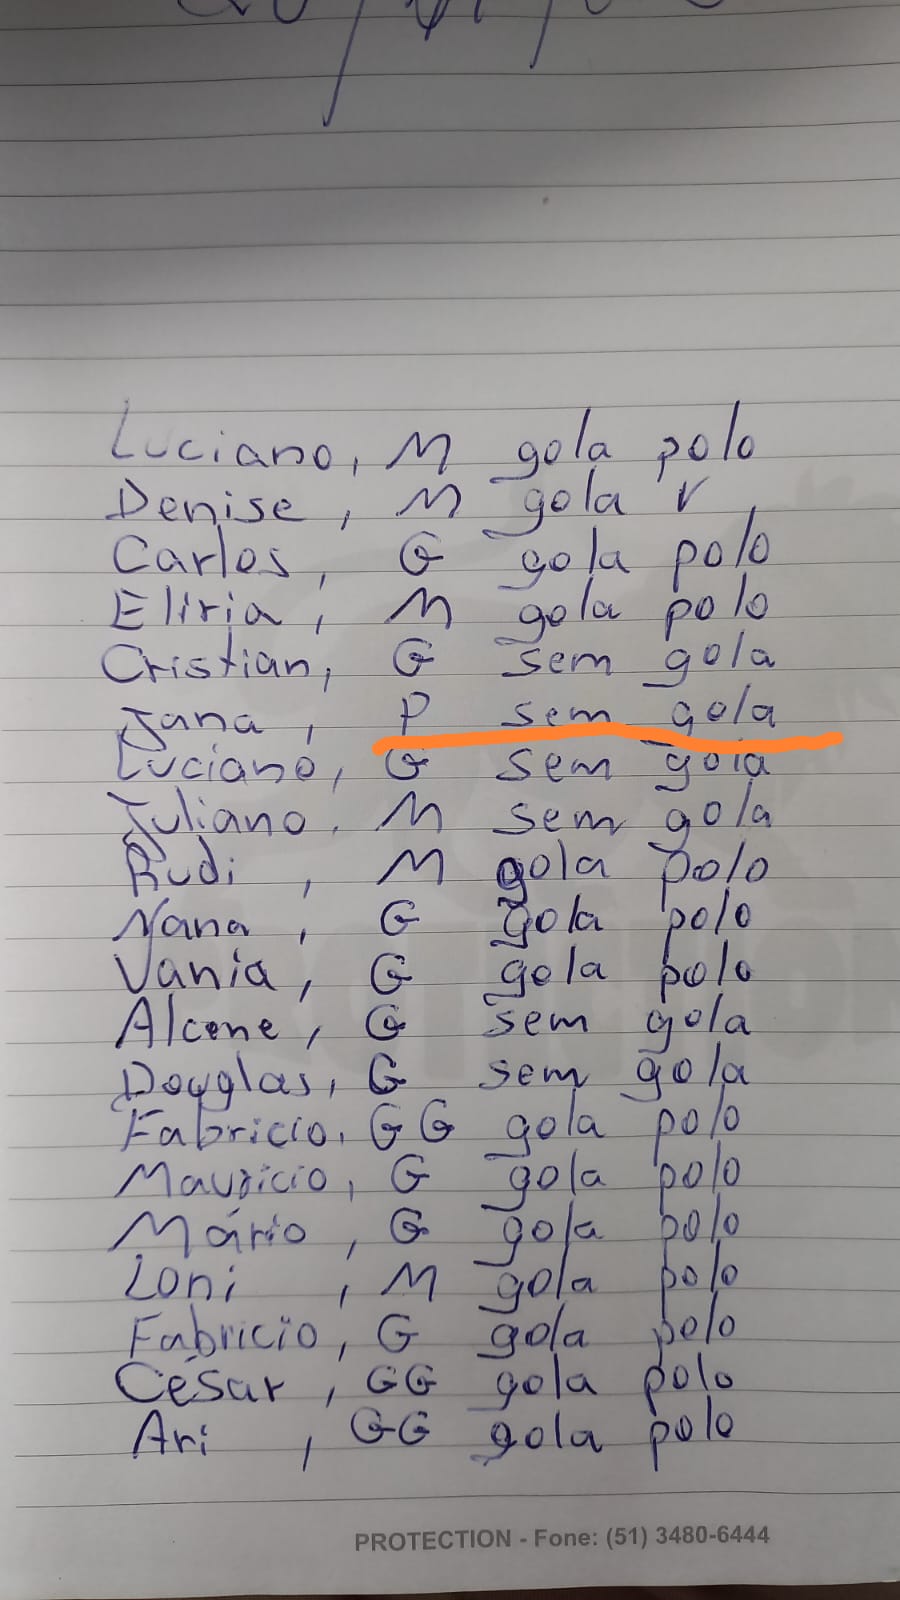 Luciano, M gola polo
Denise, M gola V
Carlos, G gola polo
Eliria, M gola polo
Cristian, G sem gola
Jana, P sem gola
Luciano, G sem gola
Juliano, M sem gola
Rudi, M gola polo
Nana, G gola polo
Vania, G gola polo
Alcene, G sem gola
Douglas, G sem gola
Fabricio, GG gola polo
Mauricio, G gola polo
Mário, G gola polo
Loni, M gola polo
Fabricio, G gola polo
César, GG gola polo
Ari, GG gola polo
PROTECTION - Fone: (51) 3480-6444